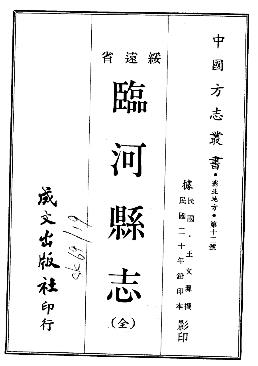 中國方志叢書・塞北地方・第十一號
據民國・王文墀撰
民國二十年鉛印本影印
綏遠省
臨河縣志
(全)
成文出版社印行